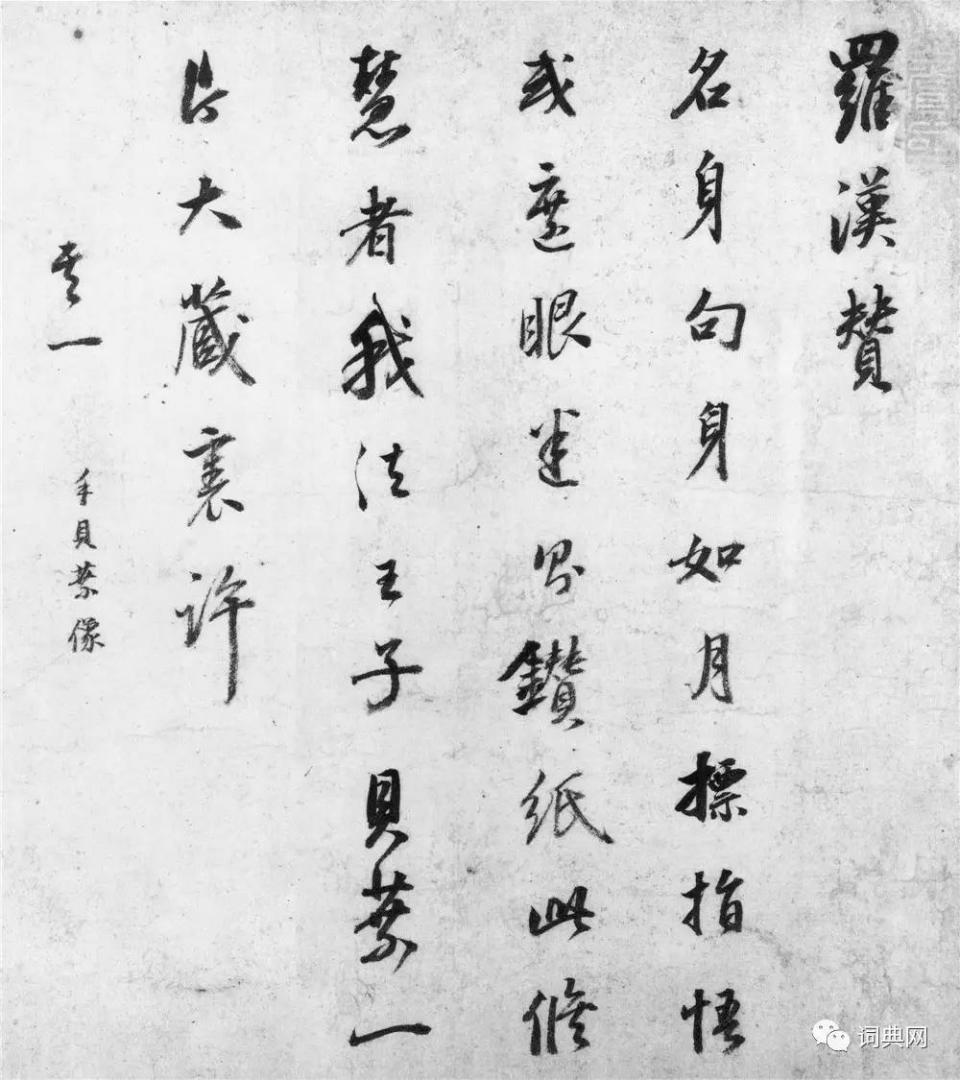 羅漢贊
名身句身如月摽指悟
或遮眼迷則鑽紙此脩
慧者我法王子貝葉一
片大藏裏許
其一
手貝葉像
词典网